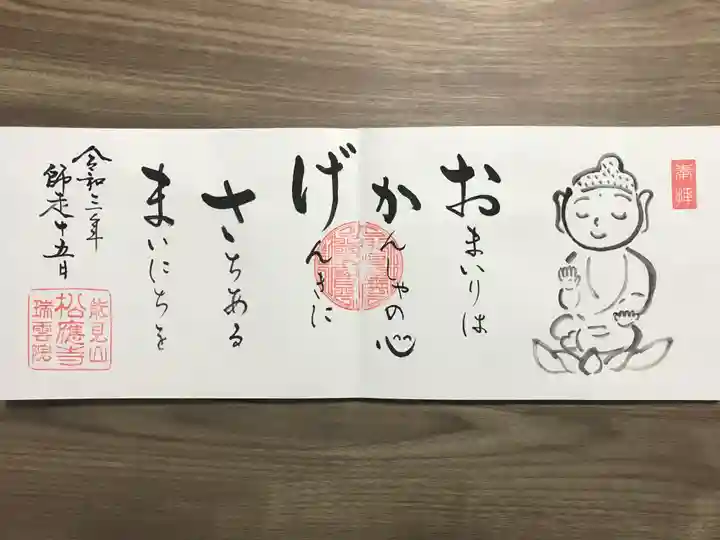 奉拝
おまいりは
かんしゃの心
げんきに
さちある
まいにちを
令和三年
師走十五日
能見山
松應寺
瑞雲院